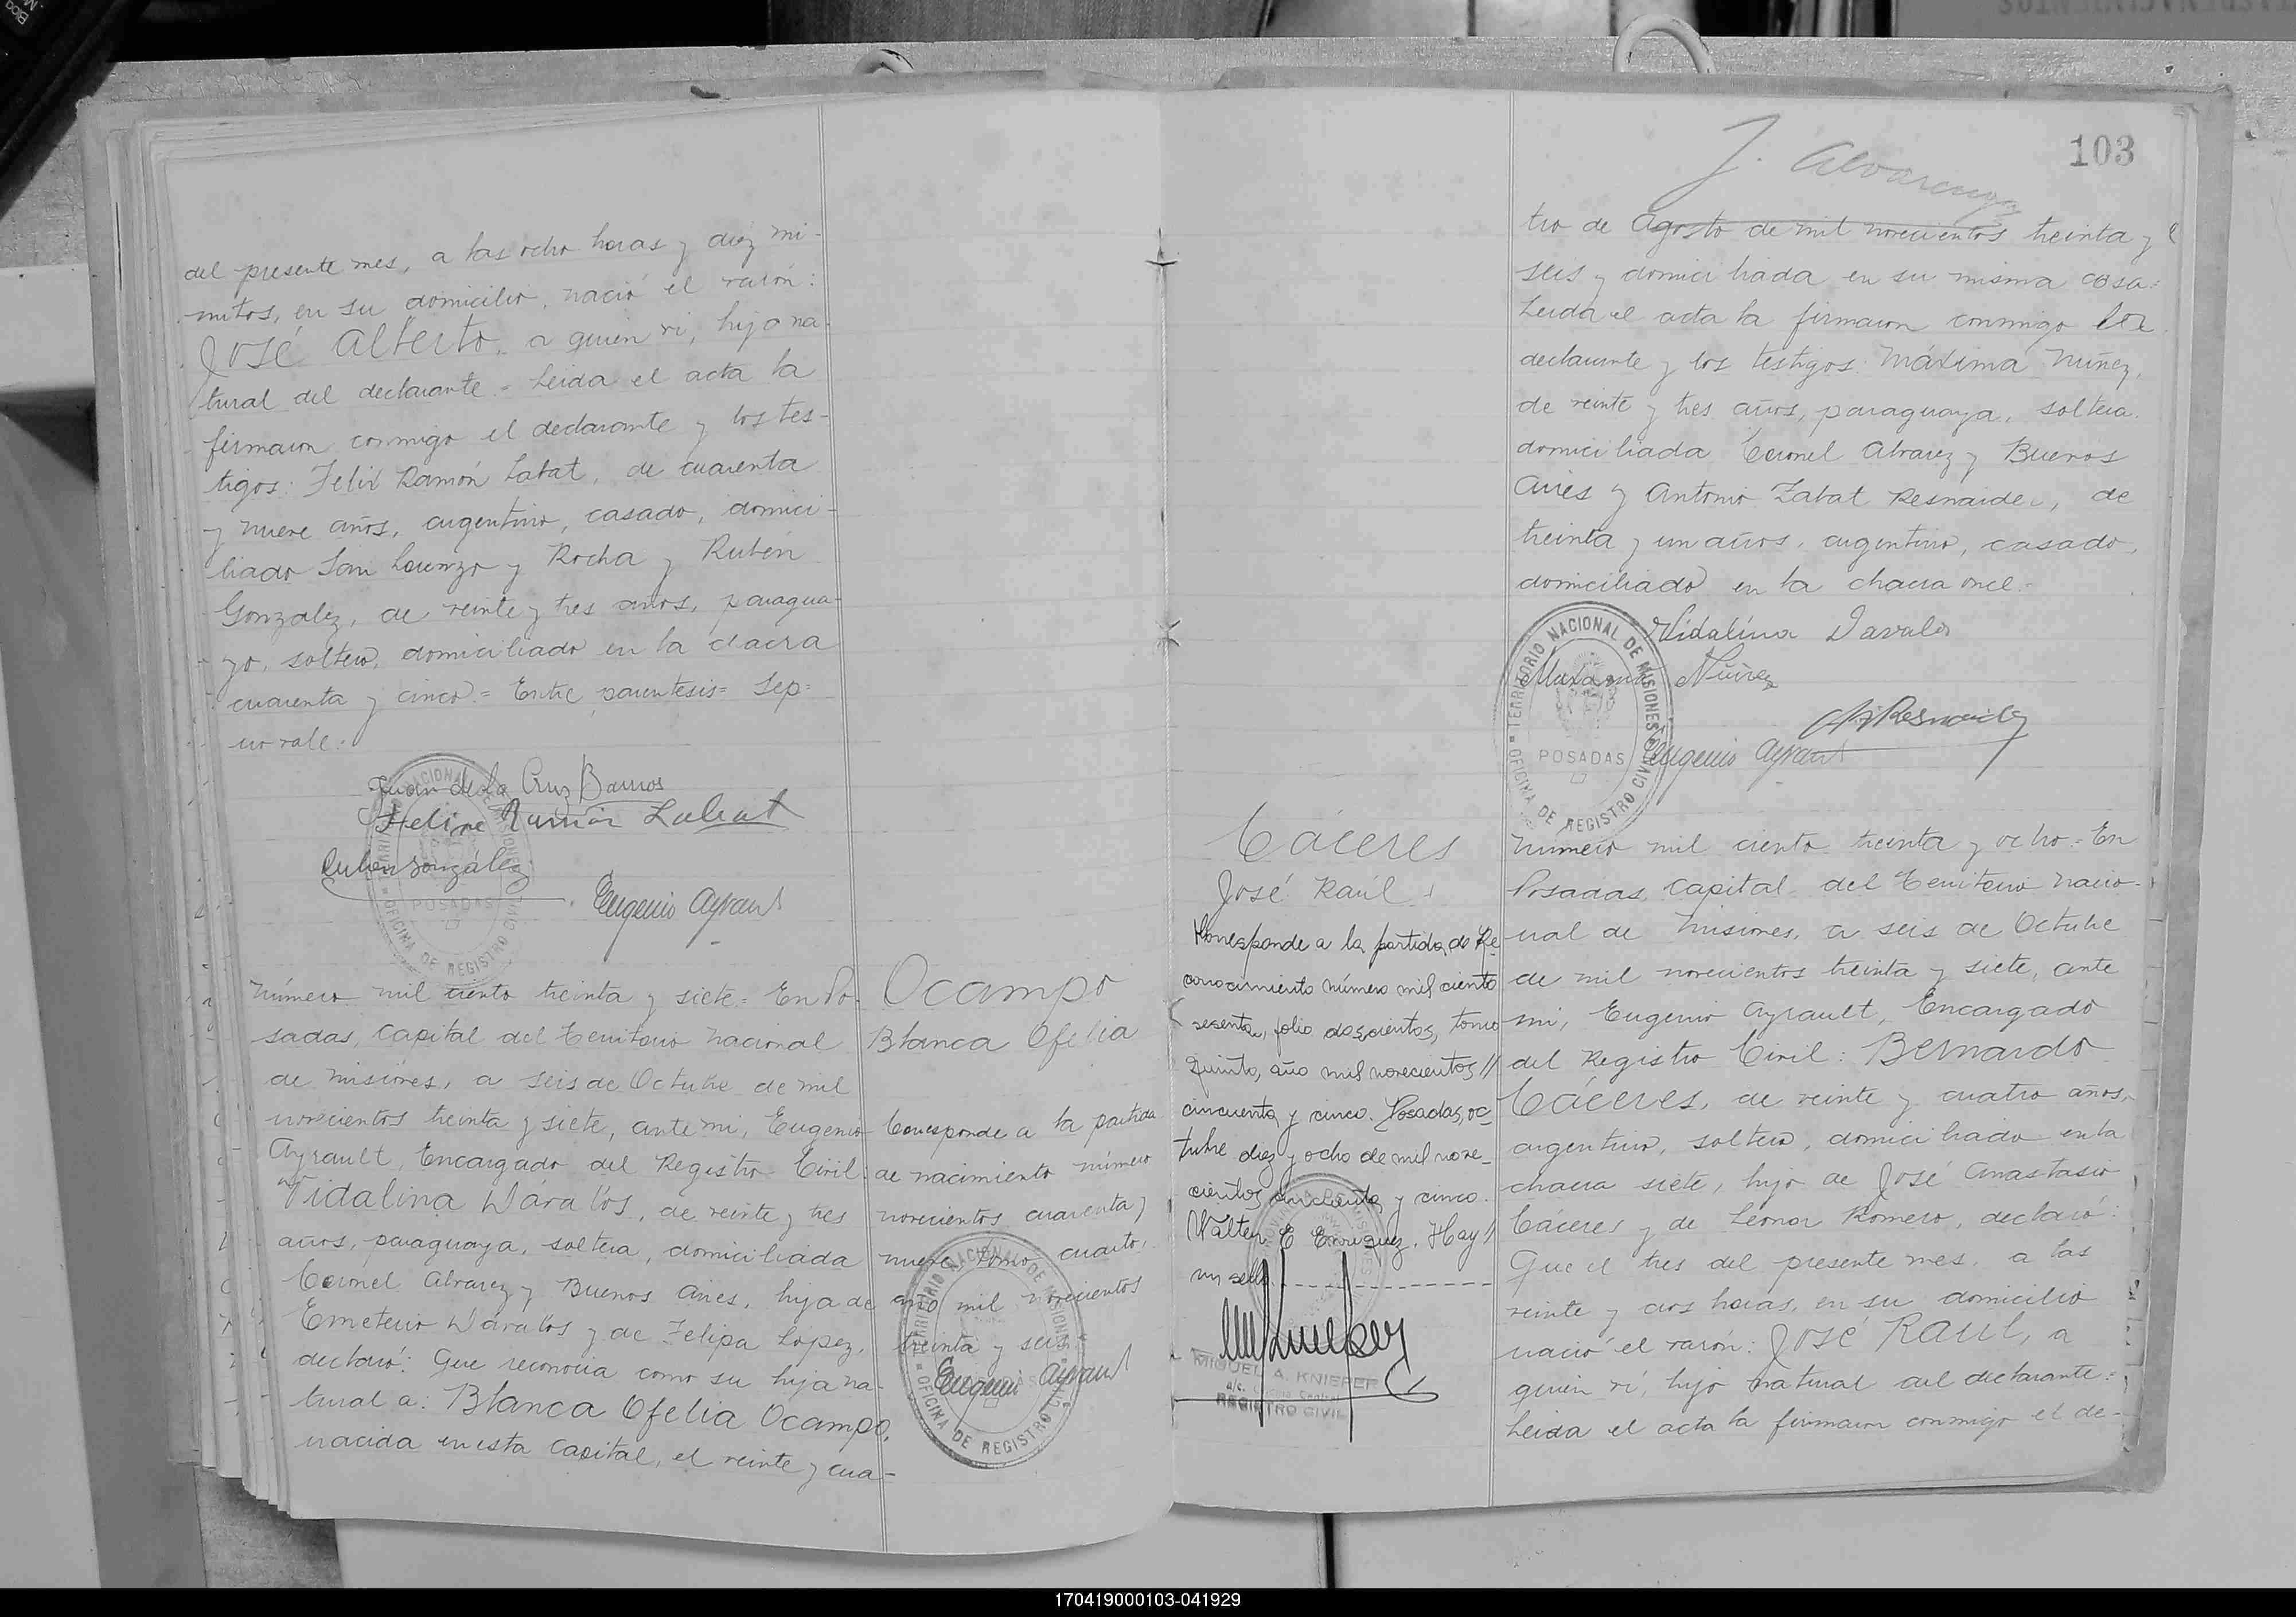 del presente mes, a las ocho horas y diez mi-
nutos, en su domicilio, nació el varón:
José Alberto, a quien vi, hijo na-
tural del declarante = Leida el acta la
firmaron conmigo el declarante y los tes-
tigos: Felix Ramón Labat, de cuarenta
y nueve años, argentino, casado, domici-
liado San Lorenzo y Rocha y Rubén
Gonzalez, de veinte y tres años, paragua-
yo, soltero, domiciliado en la chacra
cuarenta y cinco = Entre parentesis = Sep =
no vale.
Juan de la Cruz Barrios
Felix Ramón Labat
Ruben González
Eugenio Ayrault
TERRITORIO NACIONAL DE MISIONES
POSADAS
OFICINA DE REGISTRO CIVIL
Número mil ciento treinta y siete = En Po-
sadas, Capital del Territorio Nacional
de Misiones, a seis de Octubre de mil
novecientos treinta y siete, ante mi, Eugenio
Ayrault, Encargado del Registro Civil:
Vidalina Dávalos, de veinte y tres
años, paraguaya, soltera, domiciliada
Coronel Alvarez y Buenos Aires, hija de
Emeterio Dávalos y de Felipa López,
declaró: Que reconocia como su hija na-
tural a: Blanca Ofelia Ocampo,
nacida en esta Capital, el veinte y cua-
Ocampo
Blanca Ofelia
Corresponde a la partida
de nacimiento número
novecientos cuarenta y
nueve, tomo cuarto,
año mil novecientos
treinta y seis
Eugenio Ayrault
TERRITORIO NACIONAL DE MISIONES
OFICINA DE REGISTRO CIVIL
J. Alvarenga
103
tro de Agosto de mil novecientos treinta y
seis y domiciliada en su misma casa =
Leida el acta la firmaron conmigo la
declarante y los testigos: Máxima Nuñez,
de veinte y tres años, paraguaya, soltera,
domiciliada Coronel Alvarez y Buenos
Aires y Antonio Labat Resnaider, de
treinta y un años, argentino, casado,
domiciliado en la chacra once =
Vidalina Davalos
Maxima Núñez
Resnaider
Eugenio Ayrault
TERRITORIO NACIONAL DE MISIONES
POSADAS
OFICINA DE REGISTRO CIVIL
Cáceres
José Raúl
Corresponde a la partida de Re-
conocimiento número mil ciento
sesenta, folio doscientos, tomo
Quinto, año mil novecientos //
cincuenta y cinco. Posadas, oc-
tubre diez y ocho de mil nove-
cientos cincuenta y cinco.
Walter E Enriquez. Hay //
un sello.
MIGUEL A. KNIEPER
REGISTRO CIVIL
Número mil ciento treinta y ocho = En
Posadas, Capital del Territorio Nacio-
nal de Misiones, a seis de Octubre
de mil novecientos treinta y siete, ante
mi, Eugenio Ayrault, Encargado
del Registro Civil: Bernardo
Cáceres, de veinte y cuatro años,
argentino, soltero, domiciliado en la
chacra siete, hijo de José Anastasio
Cáceres y de Leonor Romero, declaró:
Que el tres del presente mes, a las
veinte y dos horas, en su domicilio
nació el varón: José Raúl, a
quien vi, hijo natural del declarante =
Leida el acta la firmaron conmigo el de-
170419000103-041929